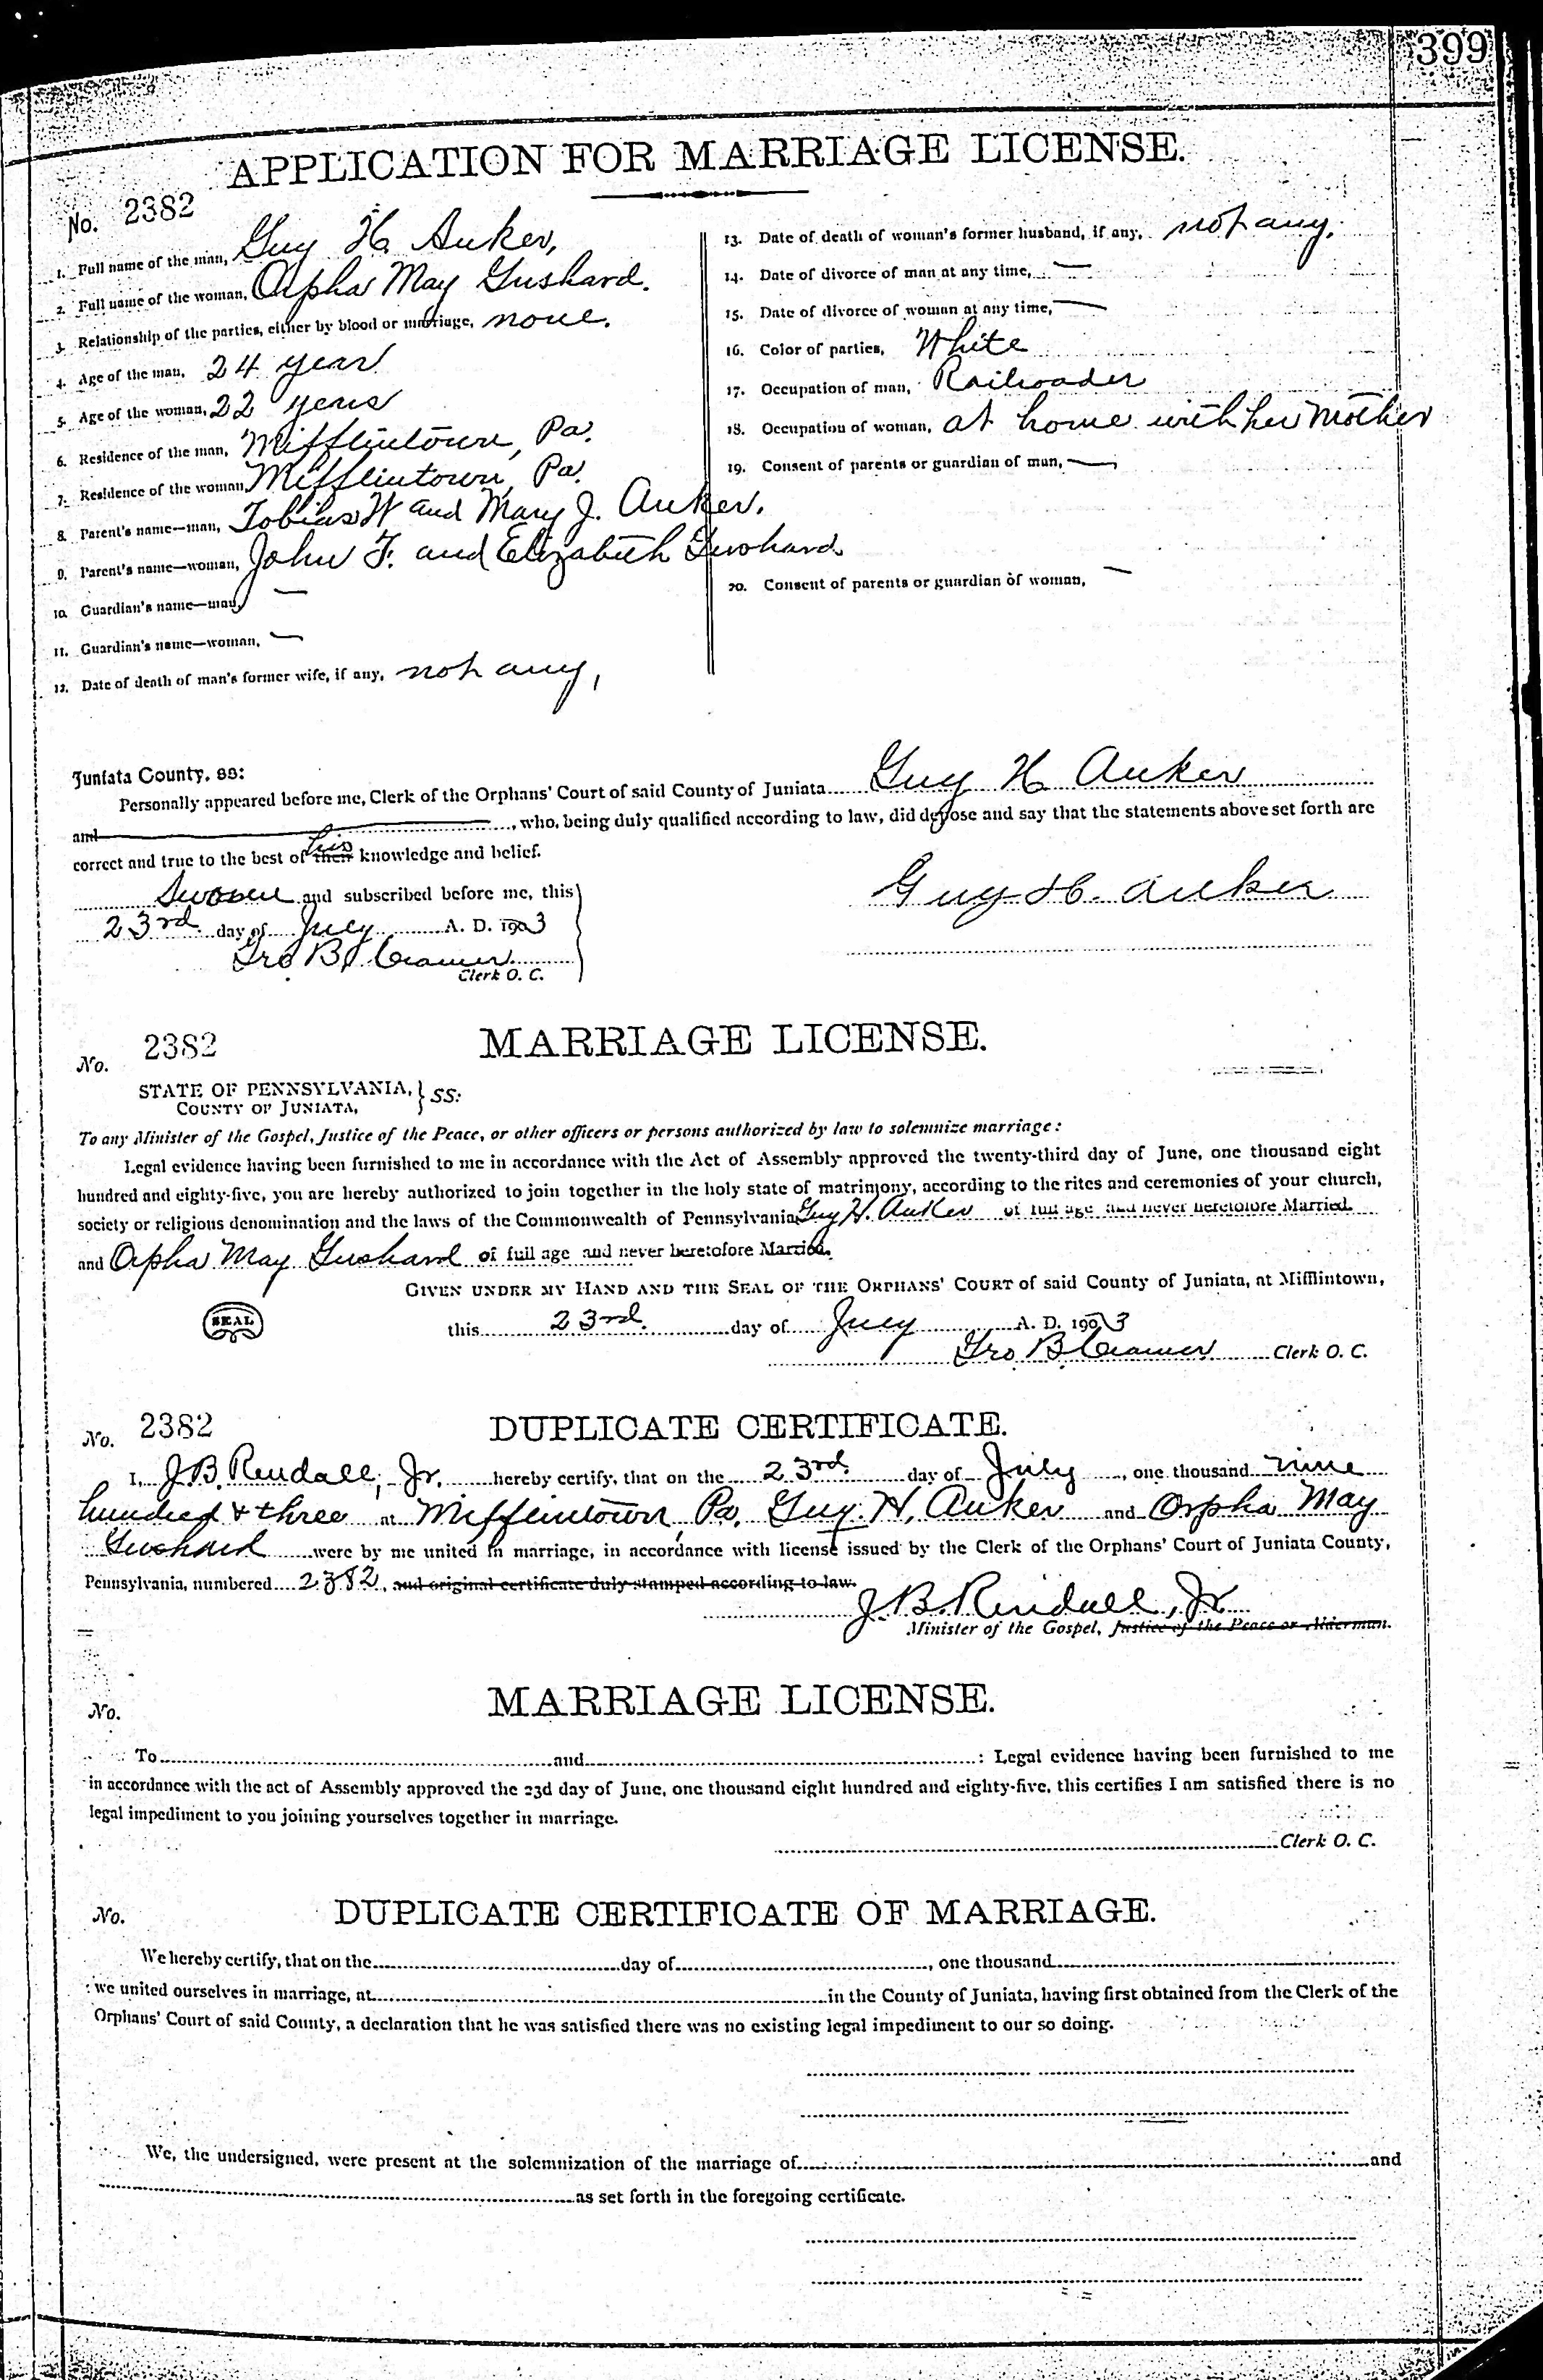 399
APPLICATION FOR MARRIAGE LICENSE.
No. 2382
1. Full name of the man, Guy H. Auker,
2. Full name of the woman, Orpha May Gushard.
3. Relationship of the parties, either by blood or marriage, none.
4. Age of the man, 24 year
5. Age of the woman, 22 years
6. Residence of the man, Mifflintown, Pa.
7. Residence of the woman, Mifflintown, Pa.
8. Parent's name—man, Tobias W and Mary J. Auker.
9. Parent's name—woman, John F. and Elizabeth Gushard
10. Guardian's name—man, —
11. Guardian's name—woman, —
12. Date of death of man's former wife, if any, not any,
13. Date of death of woman's former husband, if any, not any.
14. Date of divorce of man at any time, —
15. Date of divorce of woman at any time, —
16. Color of parties, White
17. Occupation of man, Railroader
18. Occupation of woman, at home with her Mother
19. Consent of parents or guardian of man, —
20. Consent of parents or guardian of woman, —
Juniata County, ss:
Personally appeared before me, Clerk of the Orphans' Court of said County of Juniata Guy H Auker
and , who, being duly qualified according to law, did depose and say that the statements above set forth are
correct and true to the best of their his knowledge and belief.
Sworn and subscribed before me, this
23rd day of July A. D. 1903
Geo B. Cramer
Clerk O. C.
Guy H. Auker
No. 2382 MARRIAGE LICENSE.
STATE OF PENNSYLVANIA, } SS:
COUNTY OF JUNIATA,
To any Minister of the Gospel, Justice of the Peace, or other officers or persons authorized by law to solemnize marriage:
Legal evidence having been furnished to me in accordance with the Act of Assembly approved the twenty-third day of June, one thousand eight
hundred and eighty-five, you are hereby authorized to join together in the holy state of matrimony, according to the rites and ceremonies of your church,
society or religious denomination and the laws of the Commonwealth of Pennsylvania, Guy H. Auker of full age and never heretofore Married
and Orpha May Gushard of full age and never heretofore Married.
GIVEN UNDER MY HAND AND THE SEAL OF THE ORPHANS' COURT of said County of Juniata, at Mifflintown,
SEAL
this 23rd day of July A. D. 1903
Geo B. Cramer Clerk O. C.
No. 2382 DUPLICATE CERTIFICATE.
I, J. B. Rendall, Jr. hereby certify, that on the 23rd. day of July, one thousand nine
hundred & three at Mifflintown, Pa. Guy. H. Auker and Orpha May
Gushard were by me united in marriage, in accordance with license issued by the Clerk of the Orphans' Court of Juniata County,
Pennsylvania, numbered 2382, and original certificate duly stamped according to law.
J. B. Rendall, Jr.
Minister of the Gospel, Justice of the Peace or Alderman.
No. MARRIAGE LICENSE.
To and : Legal evidence having been furnished to me
in accordance with the act of Assembly approved the 23d day of June, one thousand eight hundred and eighty-five, this certifies I am satisfied there is no
legal impediment to you joining yourselves together in marriage.
Clerk O. C.
No. DUPLICATE CERTIFICATE OF MARRIAGE.
We hereby certify, that on the day of , one thousand
we united ourselves in marriage, at in the County of Juniata, having first obtained from the Clerk of the
Orphans' Court of said County, a declaration that he was satisfied there was no existing legal impediment to our so doing.
We, the undersigned, were present at the solemnization of the marriage of and
as set forth in the foregoing certificate.